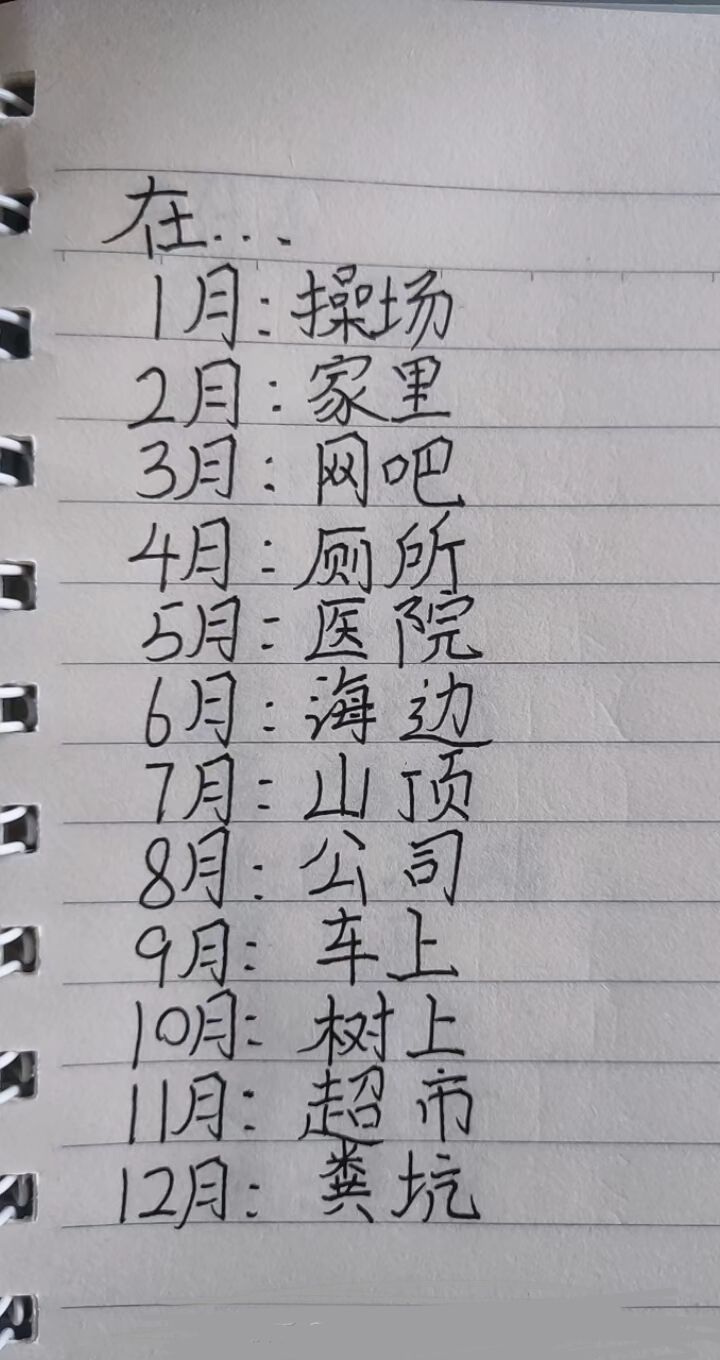 在...
1月:操场
2月:家里
3月:网吧
4月:厕所
5月:医院
6月:海边
7月:山顶
8月:公司
9月:车上
10月:树上
11月:超市
12月:粪坑